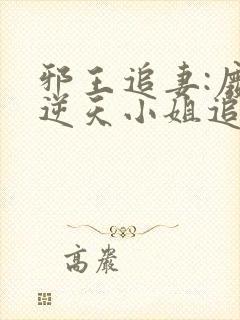 邪王追妻:
逆天小姐追
高嚴